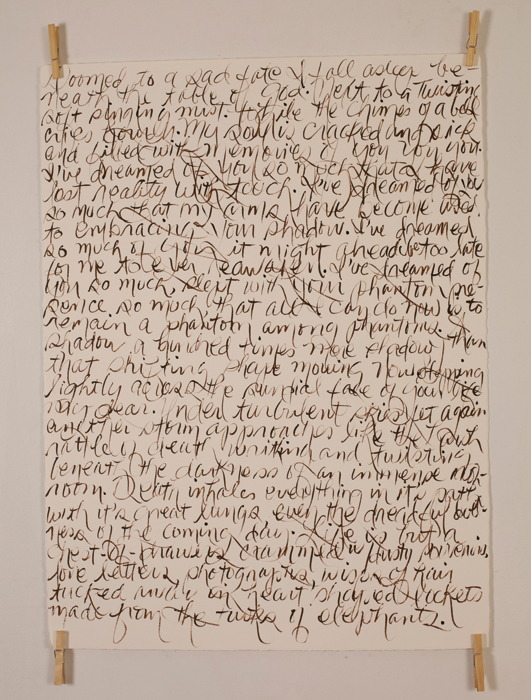 Doomed to a sad fate I fall asleep be
neath the table of God. Next to a twisting
soft singing mist. While the chimes of a bell
cries My soul is cracked and sick
and filled with memories of you you you.
I've dreamed of you so much that I have
lost reality with touch. I've dreamed of you
so much that my arms have become used
to embracing your shadow. I've dreamed
so much of you it might already too late
for me to ever reawaken. I've dreamed of
you so much, slept with your phantom pre-
sence so much, that all I can do now is to
remain a phantom among phantoms. a
shadow a hundred times more shadow than
that shifting shape moving now
lightly across the sundial face of your life
my dear. Under turbulent skies yet again
another storm approaches like the
rattle of death writhing and twisting
beneath the darkness of an immense
Death inhales everything in its path
with it's great lungs even the dreadful
ness of the coming day. Life is but a
chest-of-drawers crammed w/ dusty
love letters, photographs, wisps of hair
tucked away in heart shaped lockets
made from the tusks of elephants.